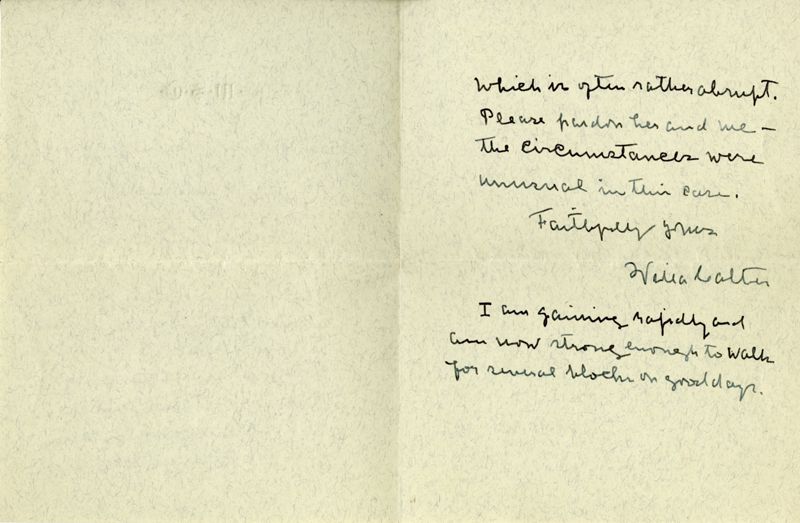 which is often rather abrupt.
Please pardon her and me —
the circumstances were
unusual in this case.
Faithfully yours
Willa Cather
I am gaining rapidly and
am now strong enough to walk
for several blocks on good days.